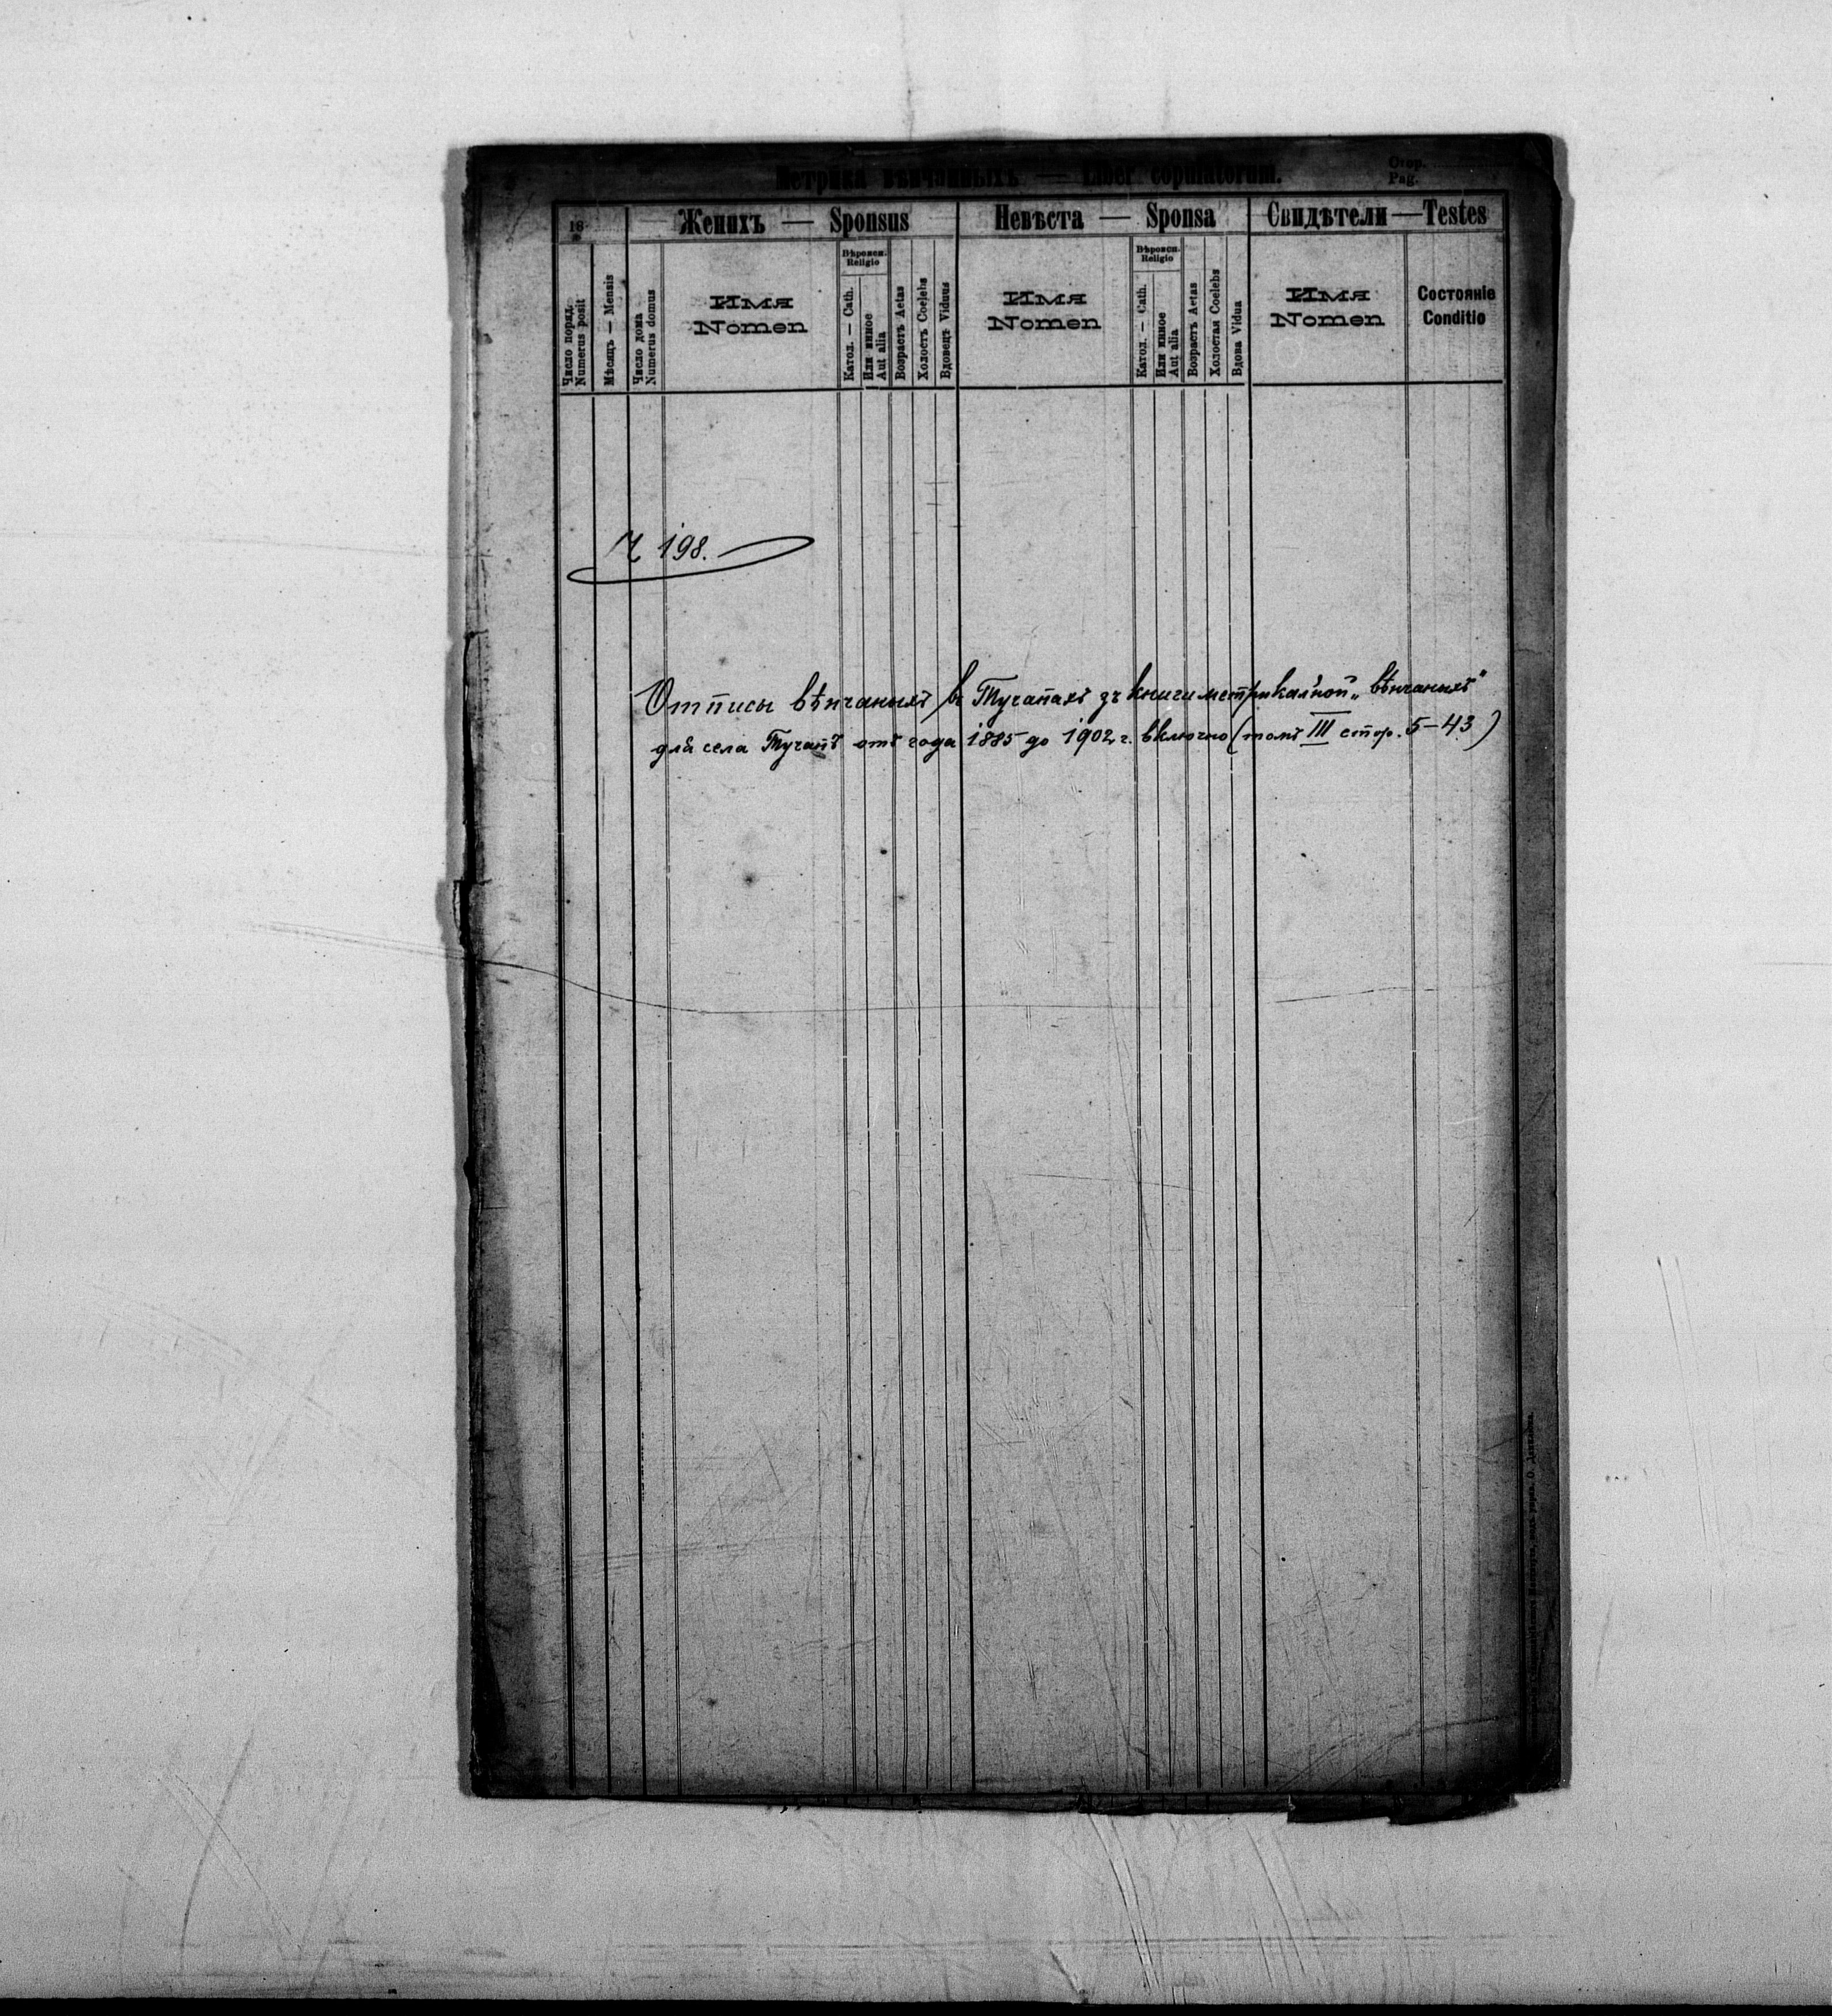 Метрика вѣнчанныхъ — Liber copulatorum.
Стор.
Pag.
18
Женихъ — Sponsus
Невѣста — Sponsa
Свидѣтели — Testes
Число поряд.
Numerus posit
Мѣсяцъ — Mensis
Число дома
Numerus domus
Имя
Nomen
Вѣроисп.
Religio
Катол. — Cath.
Или инное
Aut alia
Возрастъ Aetas
Холостъ Coelebs
Вдовецъ Viduus
Имя
Nomen
Вѣроисп.
Religio
Катол. — Cath.
Или инное
Aut alia
Возрастъ Aetas
Холостая Coelebs
Вдова Vidua
Имя
Nomen
Состояніе
Conditio
198.
Отписы вѣнчаныхъ въ Тучапахъ зъ книги метрикальной „вѣнчаныхъ"
для села Тучапъ отъ года 1885 до 1902 г. включно (томъ III стор. 5-43)